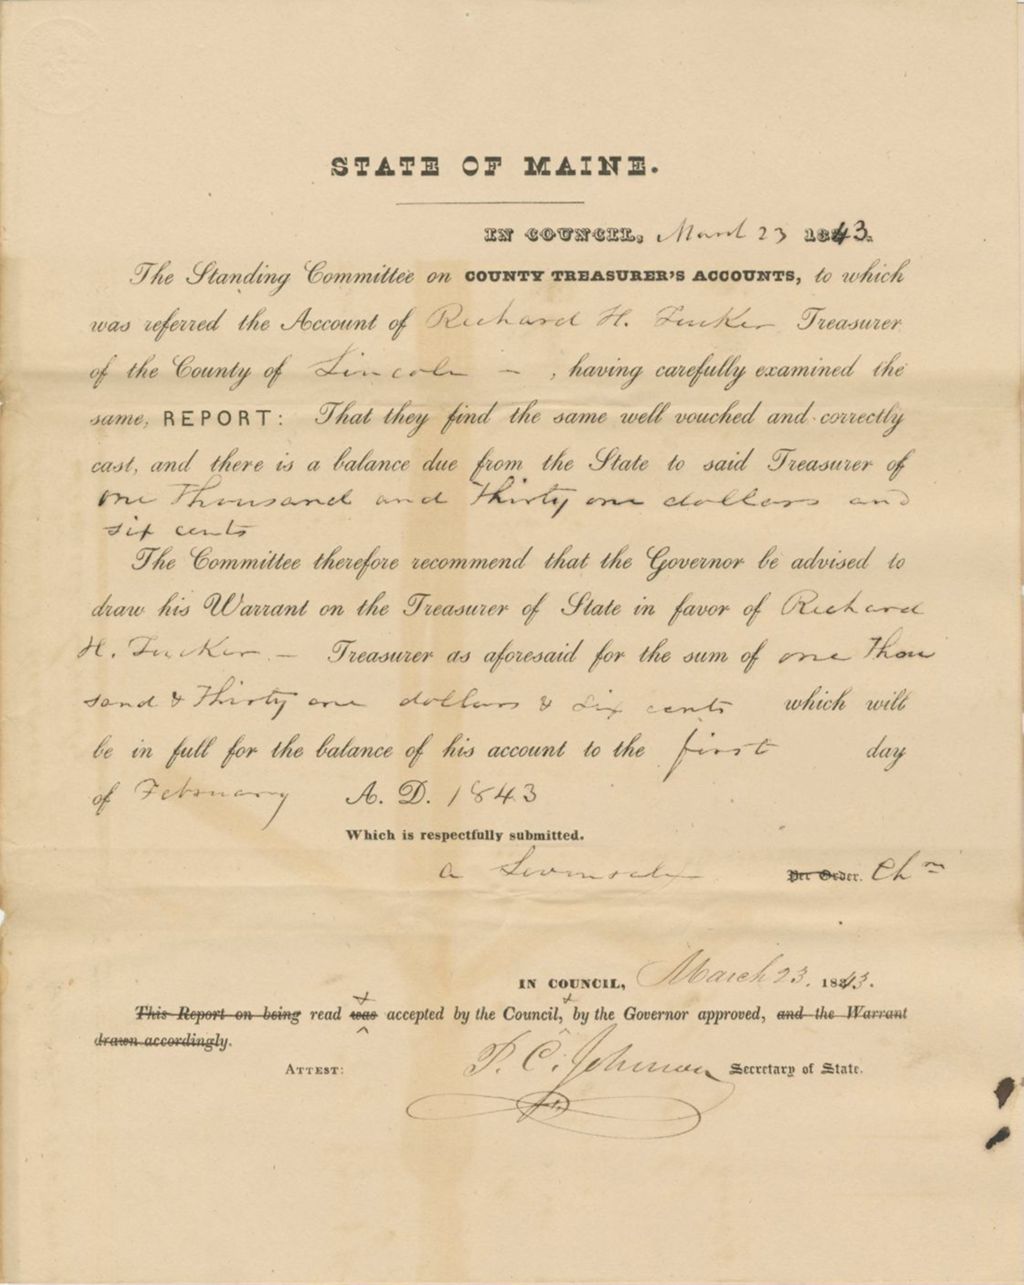 STATE OF MAINE.
IN COUNCIL, March 23 1843.
The Standing Committee on COUNTY TREASURER'S ACCOUNTS, to which
was referred the Account of Richard H. Tucker Treasurer
of the County of Lincoln - , having carefully examined the
same, REPORT: That they find the same well vouched and correctly
cast, and there is a balance due from the State to said Treasurer of
one Thousand and Thirty one dollars and
six cents
The Committee therefore recommend that the Governor be advised to
draw his Warrant on the Treasurer of State in favor of Richard
H. Tucker - Treasurer as aforesaid for the sum of one Thou
sand & Thirty one dollars & six cents which will
be in full for the balance of his account to the first day
of February A. D. 1843
Which is respectfully submitted.
a Per Order. Chn
IN COUNCIL, March 23. 1843.
This Report on being read was & accepted by the Council, & by the Governor approved, and the Warrant
drawn accordingly.
ATTEST: P. C. Johnson Secretary of State.